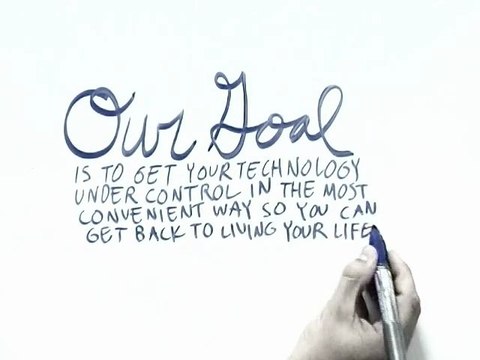 Our Goal
IS TO GET YOUR TECHNOLOGY
UNDER CONTROL IN THE MOST
CONVENIENT WAY SO YOU CAN
GET BACK TO LIVING YOUR LIFE